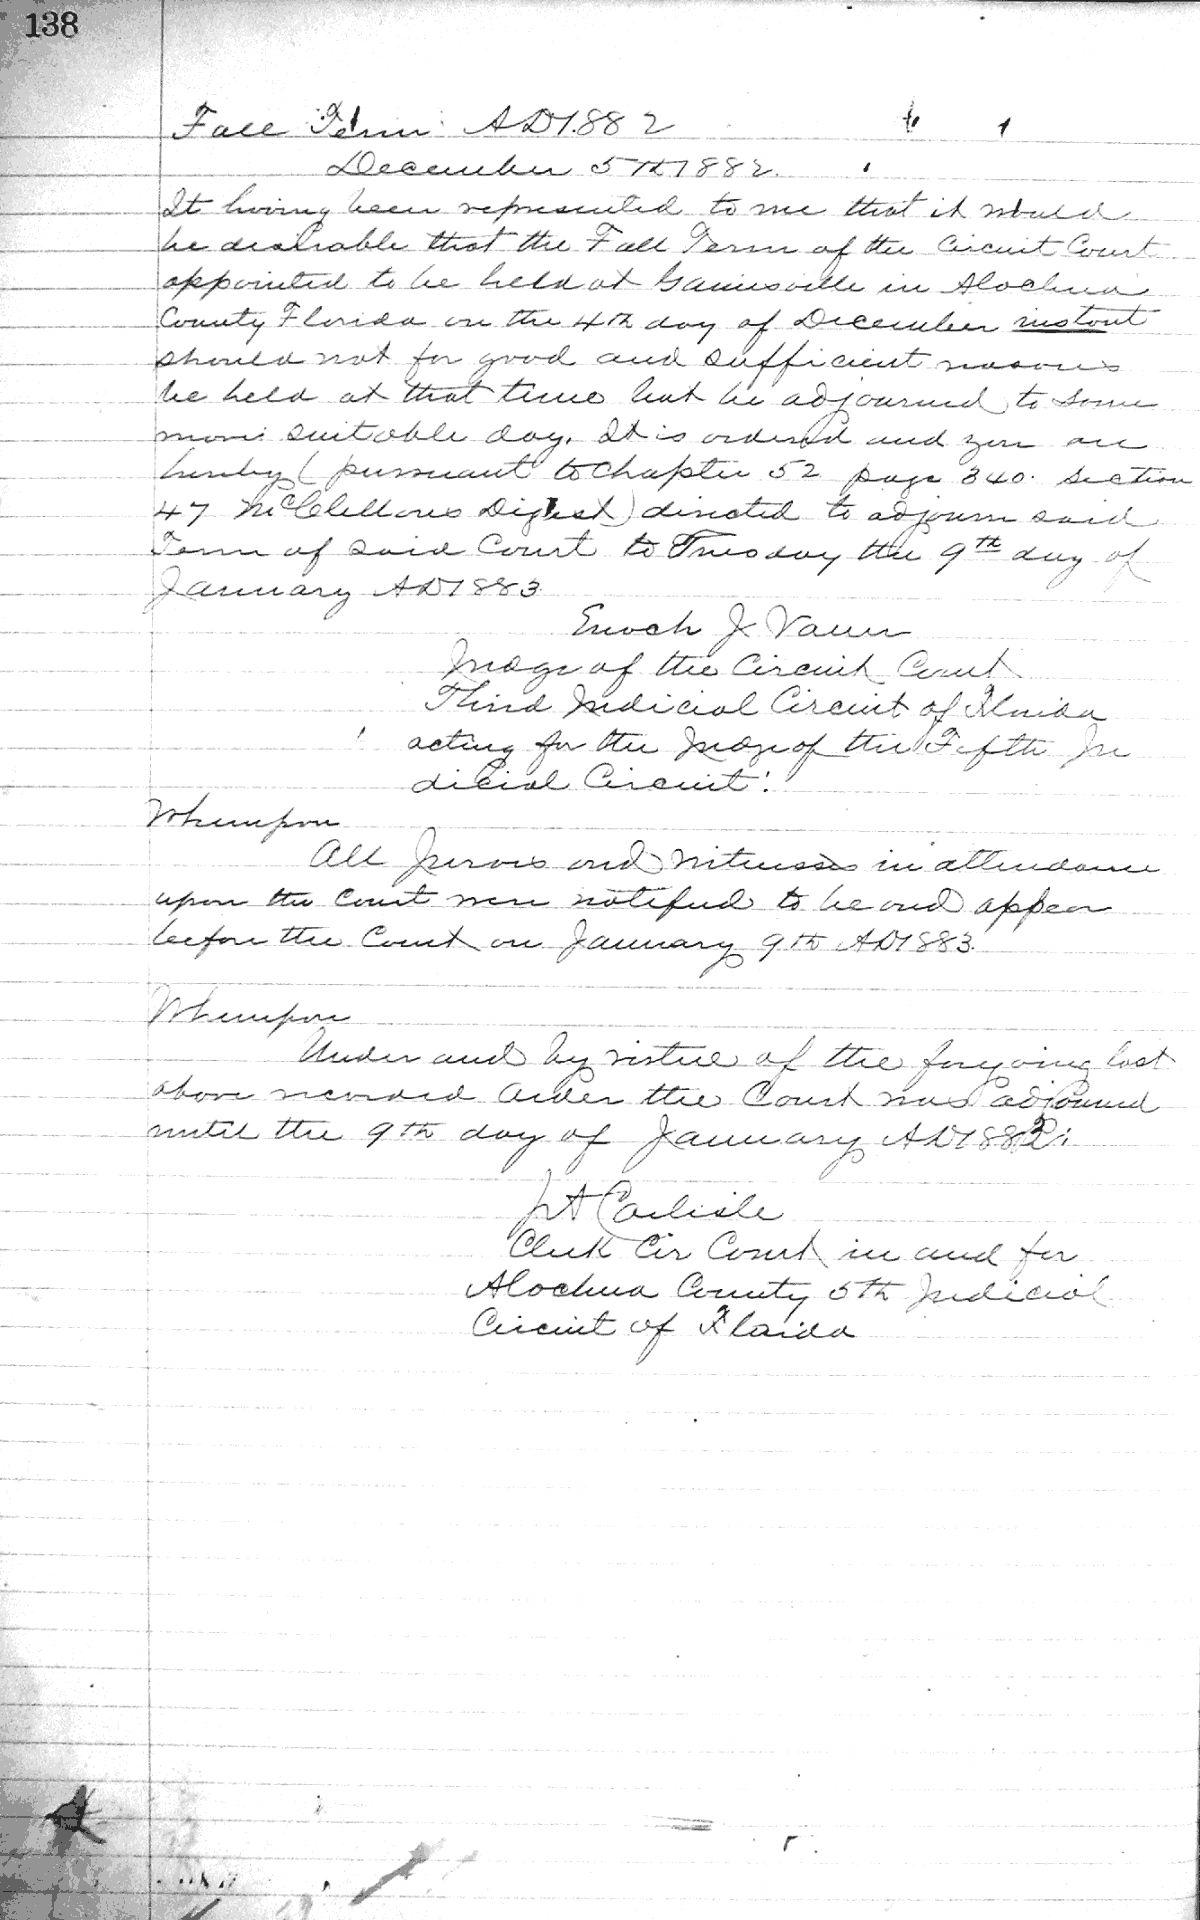 138
Fall Term AD 1882
December 5th 1882.
It having been represented to me that it would
be desirable that the Fall Term of the Circuit Court
appointed to be held at Gainesville in Alachua
County Florida on the 4th day of December instant
should not for good and sufficient reasons
be held at that time but be adjourned to some
more suitable day. It is ordered and you are
hereby (pursuant to Chapter 52 page 340. Section
47 McClellans Digest) directed to adjourn said
Term of said Court to Tuesday the 9th day of
January AD 1883
Enoch J. Vann
Judge of the Circuit Court
Third Judicial Circuit of Florida
acting for the Judge of the Fifth Ju
dicial Circuit.
Whereupon
All Jurors and Witnesses in attendance
upon the Court were notified to be and appear
before the Court on January 9th AD 1883.
Whereupon
Under and by virtue of the forgoing last
above recorded order the Court was adjourned
until the 9th day of January AD 1883.
J A Carlisle
Clerk Cir Court in and for
Alachua County 5th Judicial
Circuit of Florida